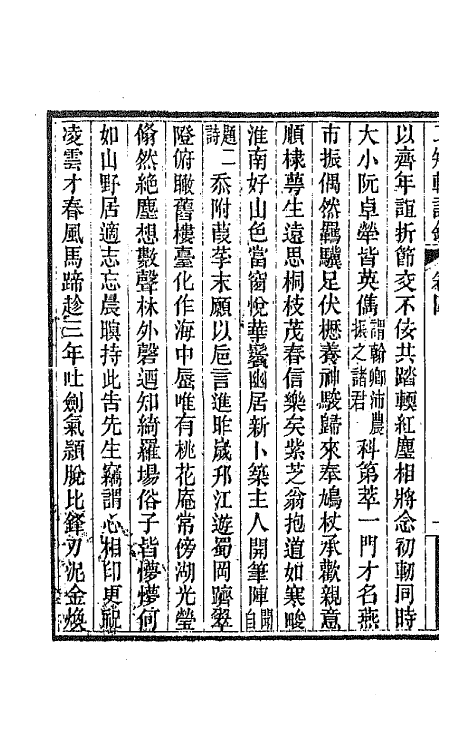 以齊年誼折節交不佞共踏輭紅塵相將念初軔同時
大小阮卓犖皆英儁謂翰卿沛農振之諸君科第萃一門才名燕
市振偶然羈驥足伏櫪養神駿歸來奉鳩杖承歡親意
順棣萼生遠思桐枝茂春信樂矣紫芝翁抱道如寒畯
淮南好山色當窗悅華鬢幽居新卜築主人開筆陣閒自
題詩二忝附葭莩末願以巵言進昨歲邗江遊蜀岡躋翠
隥俯瞰舊樓臺化作海中蜃唯有桃花庵常傍湖光瑩
翛然絶塵想數聲林外磬迴知綺羅場俗子皆懜懜何
如山野居適志忘晨暝持此告先生竊謂心相印更祝
凌雲才春風馬蹄趁三年吐劍氣穎脫比鋒刃泥金煥